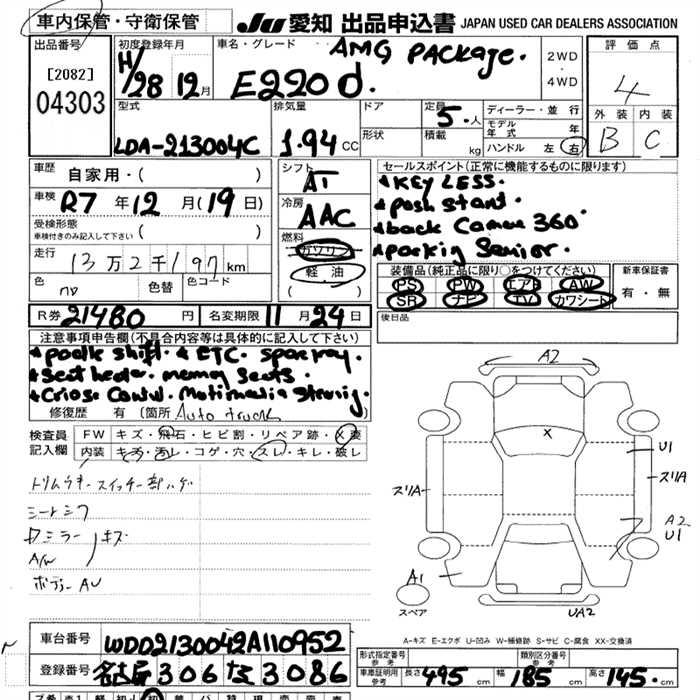 車内保管・守衛保管
JU 愛知 出品申込書 JAPAN USED CAR DEALERS ASSOCIATION
出品番号
[2082]
04303
初度登録年月
H/28 12月
車名・グレード
AMG PACKAGE.
E220d.
2WD
・
4WD
評価点
4
外装 内装
B C
型式
LDA-213004C
排気量
1.94 CC
ドア
形状
定員
5.人
積載
kg
ディーラー・並行
モデル年式 年
ハンドル 左 右
車歴
自家用・( )
車検
R7年12月(19日)
受検形態
車検付きのみ記入して下さい ( )
走行
13万2千197km
色
色替
色コード
シフト
AT
冷房
AAC
燃料
ガソリン
軽油
( )
セールスポイント(正常に機能するものに限ります)
KEY LESS.
push start.
back Camera 360.
装備品(純正品に限り〇)をつけてください)
PS PW エアB AW
SR ナビ TV カワシート
新車保証書
有・無
後日品
R券 21480 円
名変期限 11月24日
注意事項申告欄(不具合内容等は具体的に記入して下さい)
ETC.
memory Seats.
修復歴 有 (箇所
検査員記入欄
FW キズ・飛石・ヒビ割・リペア跡・X要
内装 キズ・汚レ・コゲ・穴・スレ・キレ・破レ
シートシワ
ドミラー キズ
A/W
ボデー AU
A2
X
U1
スリA
スリA
A2
U1
A1
スペア
UA2
A-キズ E-エクボ U-凹み W-補修跡 S-サビ C-腐食 XX-交換済
車台番号
WDD2130042A110952
登録番号
名古屋 306 な 3086
形式指定番号 参考
類別区分番号 参考
車庫証明用 参考
長さ 495 cm 幅 185 cm 高さ 145. cm